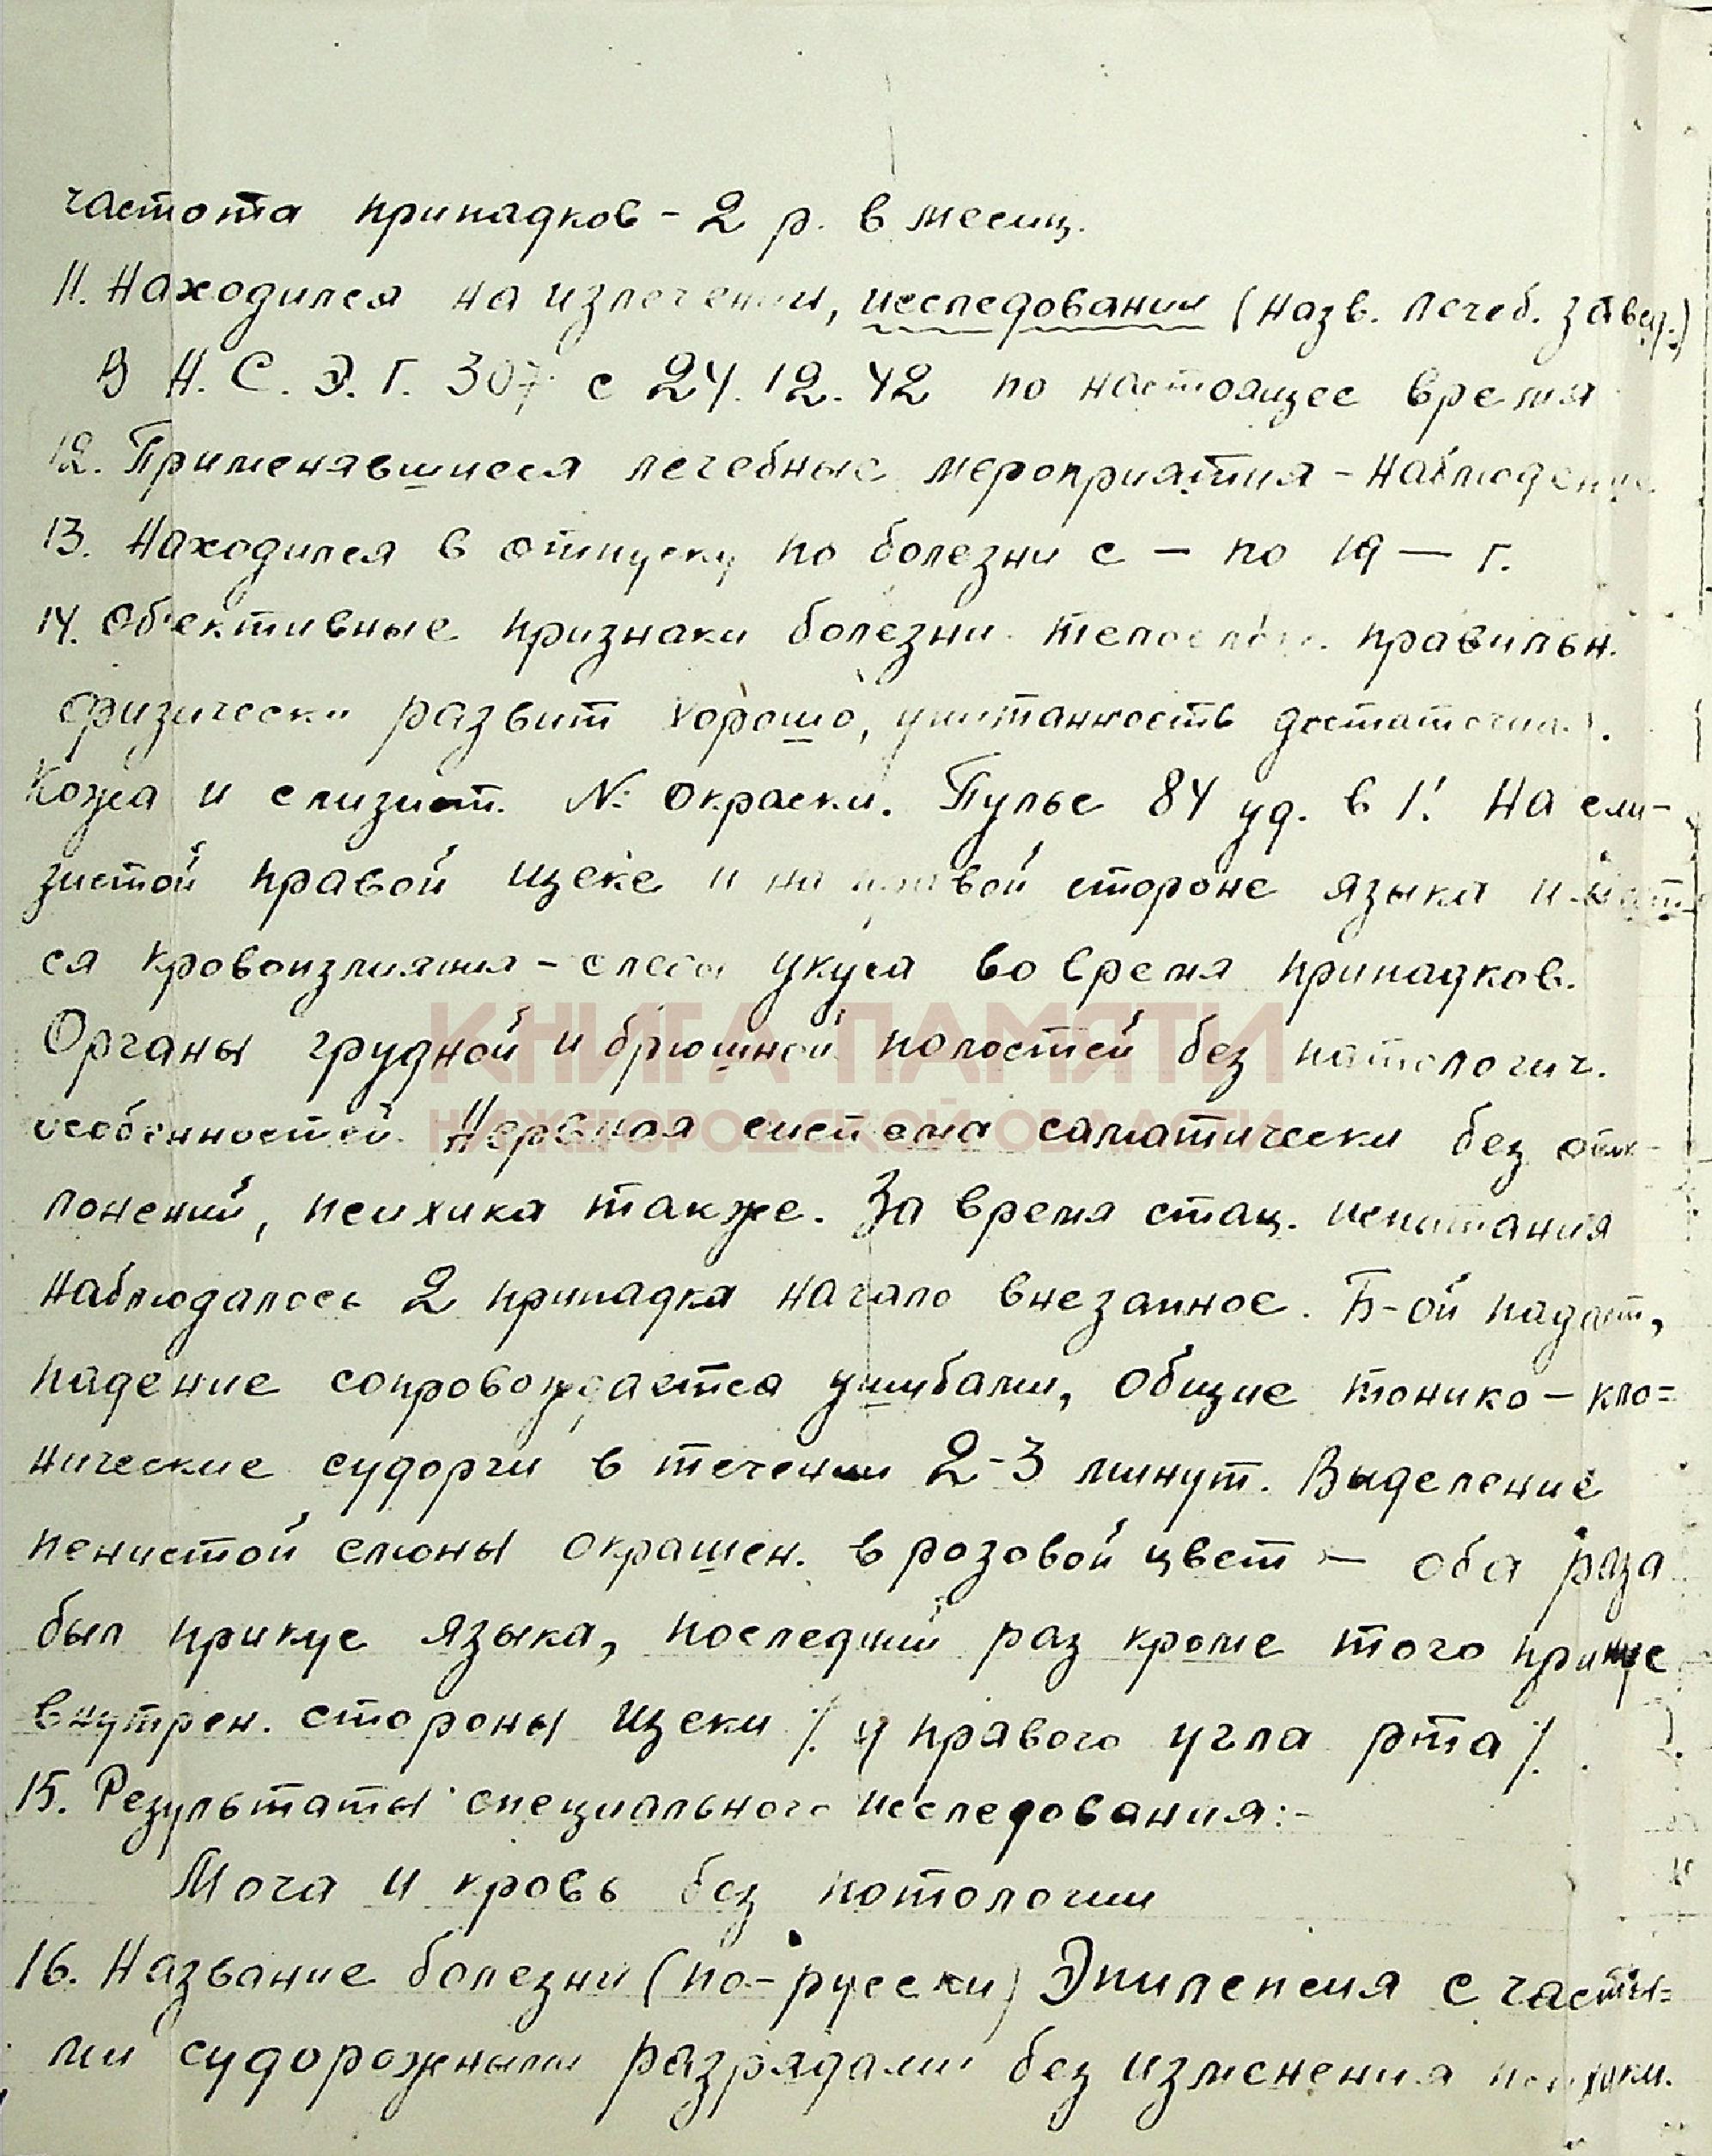 частота припадков - 2 р. в месяц.
11. Находился на излечении, исследовании (назв. лечеб. завед.)
В Н. С. Э. Г. 307 с 24.12.42 по настоящее время
12. Применявшиеся лечебные мероприятия - наблюдение
13. Находился в отпуску по болезни с — по 19 — г.
14. Об'ективные признаки болезни телослож. правильн.
физически развит хорошо, упитанность достаточная.
Кожа и слизист. N: окраски. Пульс 84 уд. в 1! На сли-
зистой правой щеке и на правой стороне языка имеют
ся кровоизлияния - следы укуса во время припадков.
КНИГА ПАМЯТИ
Органы грудной и брюшной полостей без патологич.
НИЖЕГОРОДСКОЙ ОБЛАСТИ
особенностей. Нервная система саматически без отк-
лонений, психика также. За время стац. испытания
наблюдалось 2 припадка начало внезапное. Б-ой падает,
падение сопровождается ушибами, общие тонико - кло=
нические судорги в течении 2-3 минут. Выделение
пенистой слюны окрашен. в розовой цвет — оба раза
был прикус языка, последний раз кроме того прикус
внутрен. стороны щеки /. у правого угла рта /.
15. Результаты специального исследования:-
Моча и кровь без потологии
16. Название болезни (по-русски) Эпилепсия с часты=
ми судорожными разрядами без изменения психики.